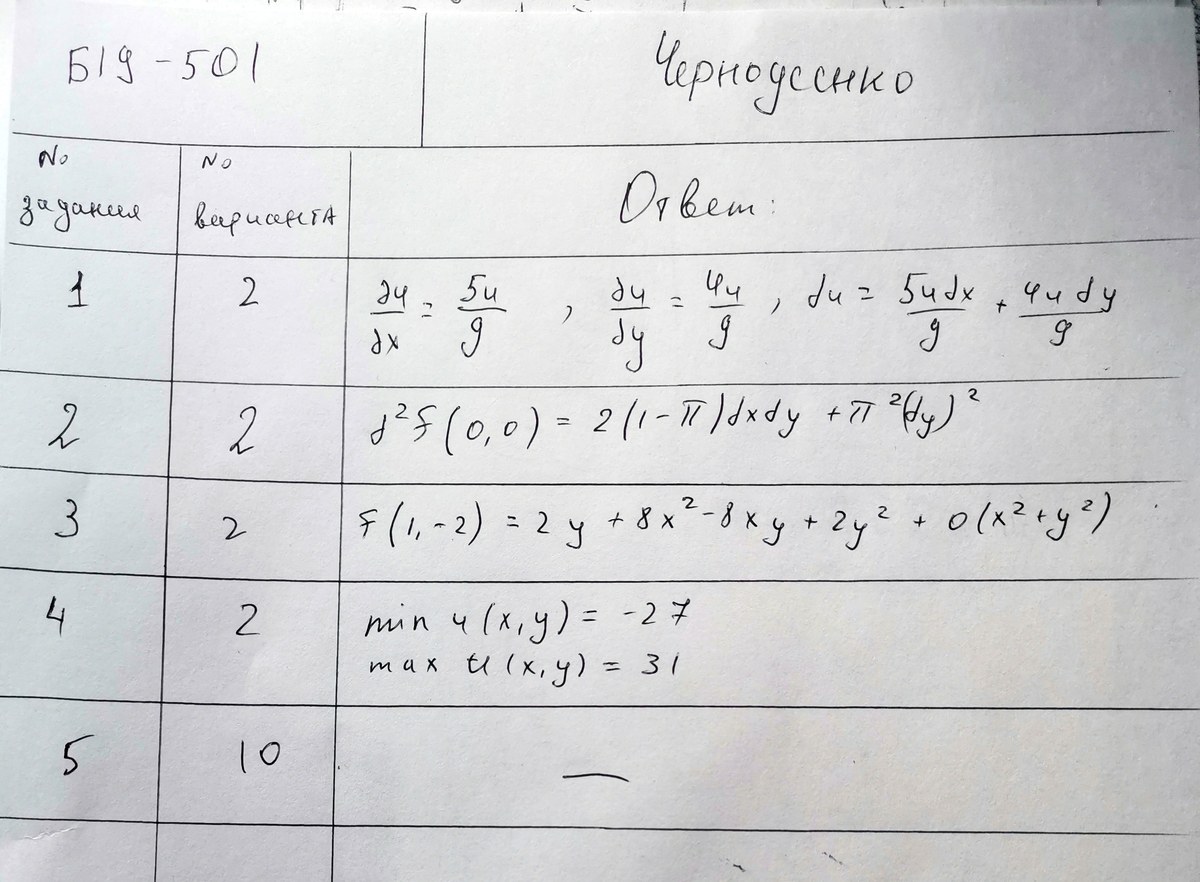 Б19-501
Чернодесенко
№ задания
№ варианта
Ответ:
1 2 ∂u/∂x = 5u/9 , ∂u/∂y = 4u/9 , du = 5udx/9 + 4udy/9
2 2 d²f(0,0) = 2(1-π)dxdy + π²(dy)²
3 2 f(1,-2) = 2y + 8x² - 8xy + 2y² + o(x²+y²)
4 2 min u(x,y) = -27
max u(x,y) = 31
5 10 —